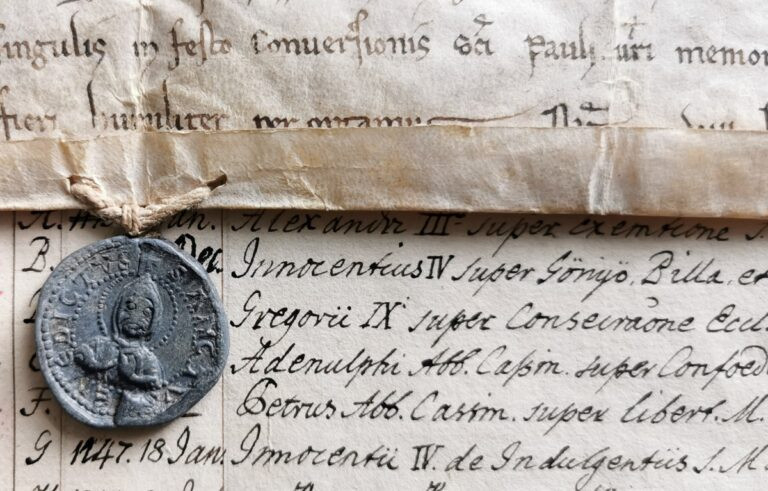 singulis in festo Conversionis sci Pauli uri memor
fieri humiliter
A. Jan. Alexandri III super exemtione S.
B. Dec. Innocentius IV super Gönÿö, Billa, et
Gregorii IX super Consecraone Eccl
Adenulphi Abb. Cassin. super Confoed
F. Petrus Abb. Cassin. super libert. M.
G 1247. 18 Jan. Innocentii IV. de Indulgentiis S. M.
EDICTVS SANC